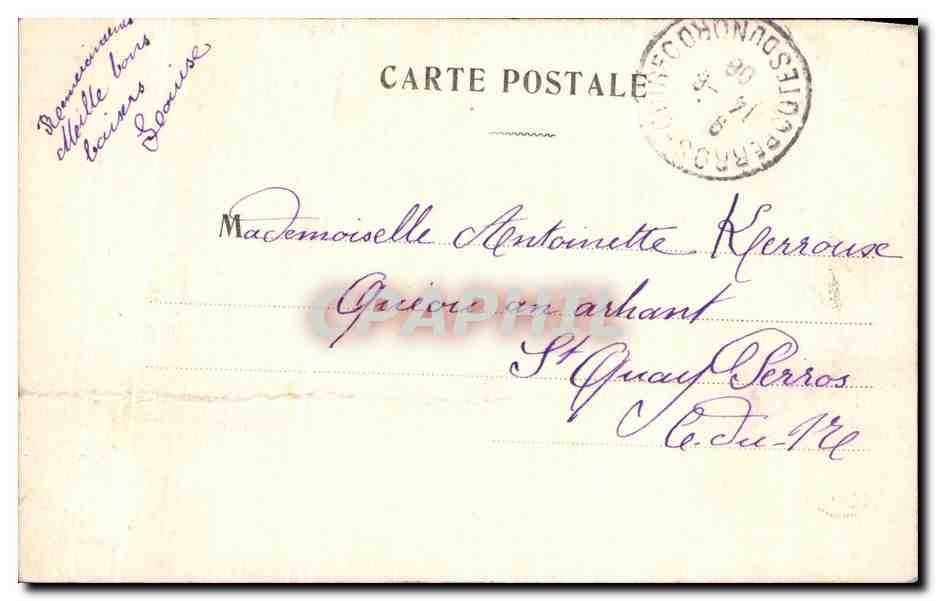 Remerciements
Meille bons
baisers
Louise
CARTE POSTALE
PERROS-GUIREC COTES DU NORD
14 -8
08
Mademoiselle Antoinette Kerroux
Quéou an arhant
St Quay Perros
C. du-N
CPAPHIL